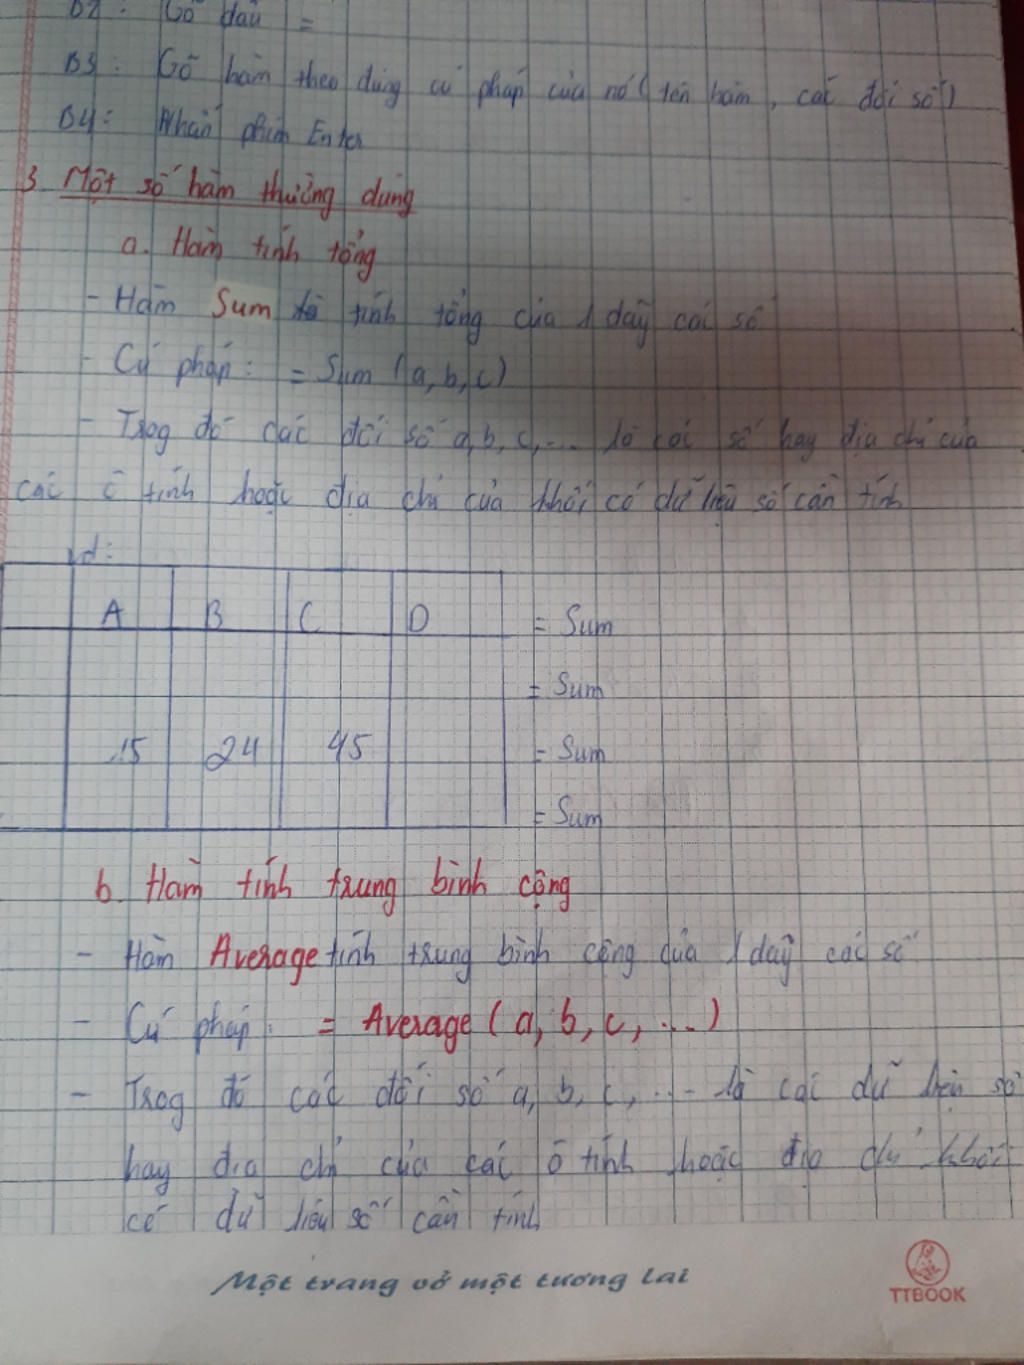 B2: Gõ dấu =
B3: Gõ hàm theo đúng cú pháp của nó (tên hàm, các đối số)
B4: Nhấn phím Enter
3. Một số hàm thường dùng
a. Hàm tính tổng
- Hàm Sum để tính tổng của 1 dãy các số
- Cú pháp: = Sum (a, b, c)
- Trog đó các đối số a, b, c, ... là các số hay địa chỉ của
các ô tính hoặc địa chỉ của khối có dữ liệu số cần tính
Vd:
A B C D = Sum
= Sum
15 24 45 = Sum
= Sum
b. Hàm tính trung bình cộng
- Hàm Average tính trung bình cộng của 1 dãy các số
- Cú pháp: = Average (a, b, c, ...)
- Trog đó các đối số a, b, c, ... là các dữ liệu số
hay địa chỉ của các ô tính hoặc địa chỉ khối
có dữ liệu số cần tính
Một trang vở một tương lai
TTBOOK